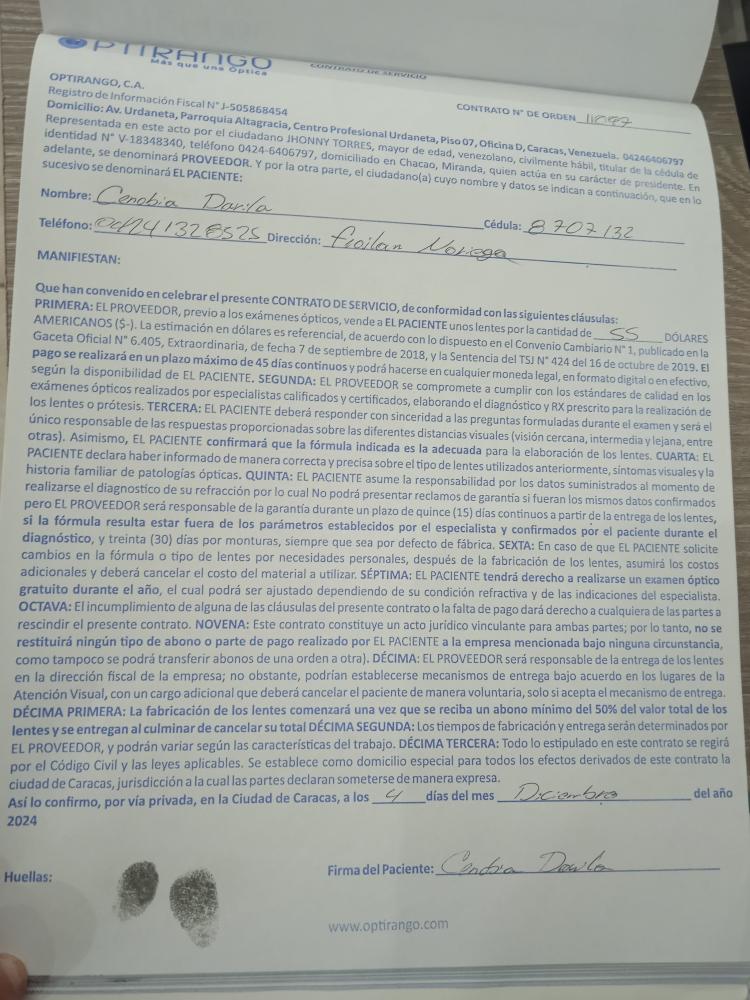 OPTIRANGO
Más que una Óptica
CONTRATO DE SERVICIO
OPTIRANGO, C.A.
Registro de Información Fiscal N° J-505868454
CONTRATO N° DE ORDEN
Domicilio: Av. Urdaneta, Parroquia Altagracia, Centro Profesional Urdaneta, Piso 07, Oficina D, Caracas, Venezuela. 04246406797
Representada en este acto por el ciudadano JHONNY TORRES, mayor de edad, venezolano, civilmente hábil, titular de la cédula de
identidad N° V-18348340, teléfono 0424-6406797, domiciliado en Chacao, Miranda, quien actúa en su carácter de presidente. En
adelante, se denominará PROVEEDOR. Y por la otra parte, el ciudadano(a) cuyo nombre y datos se indican a continuación, que en lo
sucesivo se denominará EL PACIENTE:
Nombre: Cenobia Davila Cédula: 8707132
Teléfono: 04241328525 Dirección: froilan Noriega
MANIFIESTAN:
Que han convenido en celebrar el presente CONTRATO DE SERVICIO, de conformidad con las siguientes cláusulas:
PRIMERA: EL PROVEEDOR, previo a los exámenes ópticos, vende a EL PACIENTE unos lentes por la cantidad de 55 DÓLARES
AMERICANOS ($-). La estimación en dólares es referencial, de acuerdo con lo dispuesto en el Convenio Cambiario N° 1, publicado en la
Gaceta Oficial N° 6.405, Extraordinaria, de fecha 7 de septiembre de 2018, y la Sentencia del TSJ N° 424 del 16 de octubre de 2019. El
pago se realizará en un plazo máximo de 45 días continuos y podrá hacerse en cualquier moneda legal, en formato digital o en efectivo,
según la disponibilidad de EL PACIENTE. SEGUNDA: EL PROVEEDOR se compromete a cumplir con los estándares de calidad en los
exámenes ópticos realizados por especialistas calificados y certificados, elaborando el diagnóstico y RX prescrito para la realización de
los lentes o prótesis. TERCERA: EL PACIENTE deberá responder con sinceridad a las preguntas formuladas durante el examen y será el
único responsable de las respuestas proporcionadas sobre las diferentes distancias visuales (visión cercana, intermedia y lejana, entre
otras). Asimismo, EL PACIENTE confirmará que la fórmula indicada es la adecuada para la elaboración de los lentes. CUARTA: EL
PACIENTE declara haber informado de manera correcta y precisa sobre el tipo de lentes utilizados anteriormente, síntomas visuales y la
historia familiar de patologías ópticas. QUINTA: EL PACIENTE asume la responsabilidad por los datos suministrados al momento de
realizarse el diagnostico de su refracción por lo cual No podrá presentar reclamos de garantía si fueran los mismos datos confirmados
pero EL PROVEEDOR será responsable de la garantía durante un plazo de quince (15) días continuos a partir de la entrega de los lentes,
si la fórmula resulta estar fuera de los parámetros establecidos por el especialista y confirmados por el paciente durante el
diagnóstico, y treinta (30) días por monturas, siempre que sea por defecto de fábrica. SEXTA: En caso de que EL PACIENTE solicite
cambios en la fórmula o tipo de lentes por necesidades personales, después de la fabricación de los lentes, asumirá los costos
adicionales y deberá cancelar el costo del material a utilizar. SÉPTIMA: EL PACIENTE tendrá derecho a realizarse un examen óptico
gratuito durante el año, el cual podrá ser ajustado dependiendo de su condición refractiva y de las indicaciones del especialista.
OCTAVA: El incumplimiento de alguna de las cláusulas del presente contrato o la falta de pago dará derecho a cualquiera de las partes a
rescindir el presente contrato. NOVENA: Este contrato constituye un acto jurídico vinculante para ambas partes; por lo tanto, no se
restituirá ningún tipo de abono o parte de pago realizado por EL PACIENTE a la empresa mencionada bajo ninguna circunstancia,
como tampoco se podrá transferir abonos de una orden a otra). DÉCIMA: EL PROVEEDOR será responsable de la entrega de los lentes
en la dirección fiscal de la empresa; no obstante, podrían establecerse mecanismos de entrega bajo acuerdo en los lugares de la
Atención Visual, con un cargo adicional que deberá cancelar el paciente de manera voluntaria, solo si acepta el mecanismo de entrega.
DÉCIMA PRIMERA: La fabricación de los lentes comenzará una vez que se reciba un abono mínimo del 50% del valor total de los
lentes y se entregan al culminar de cancelar su total DÉCIMA SEGUNDA: Los tiempos de fabricación y entrega serán determinados por
EL PROVEEDOR, y podrán variar según las características del trabajo. DÉCIMA TERCERA: Todo lo estipulado en este contrato se regirá
por el Código Civil y las leyes aplicables. Se establece como domicilio especial para todos los efectos derivados de este contrato la
ciudad de Caracas, jurisdicción a la cual las partes declaran someterse de manera expresa.
Así lo confirmo, por vía privada, en la Ciudad de Caracas, a los 4 días del mes Diciembre del año
2024
Huellas:
Firma del Paciente: Cenobia Davila
www.optirango.com